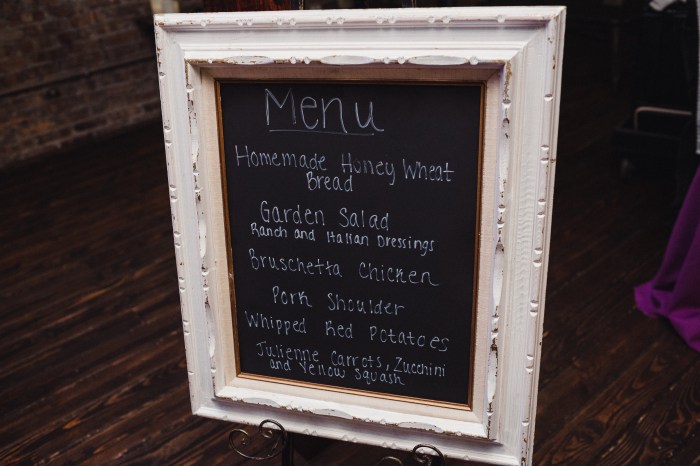 Menu
Homemade Honey Wheat
Bread
Garden Salad
Ranch and Italian Dressings
Bruschetta Chicken
Pork Shoulder
Whipped Red Potatoes
Julienne Carrots, Zucchini
and Yellow Squash